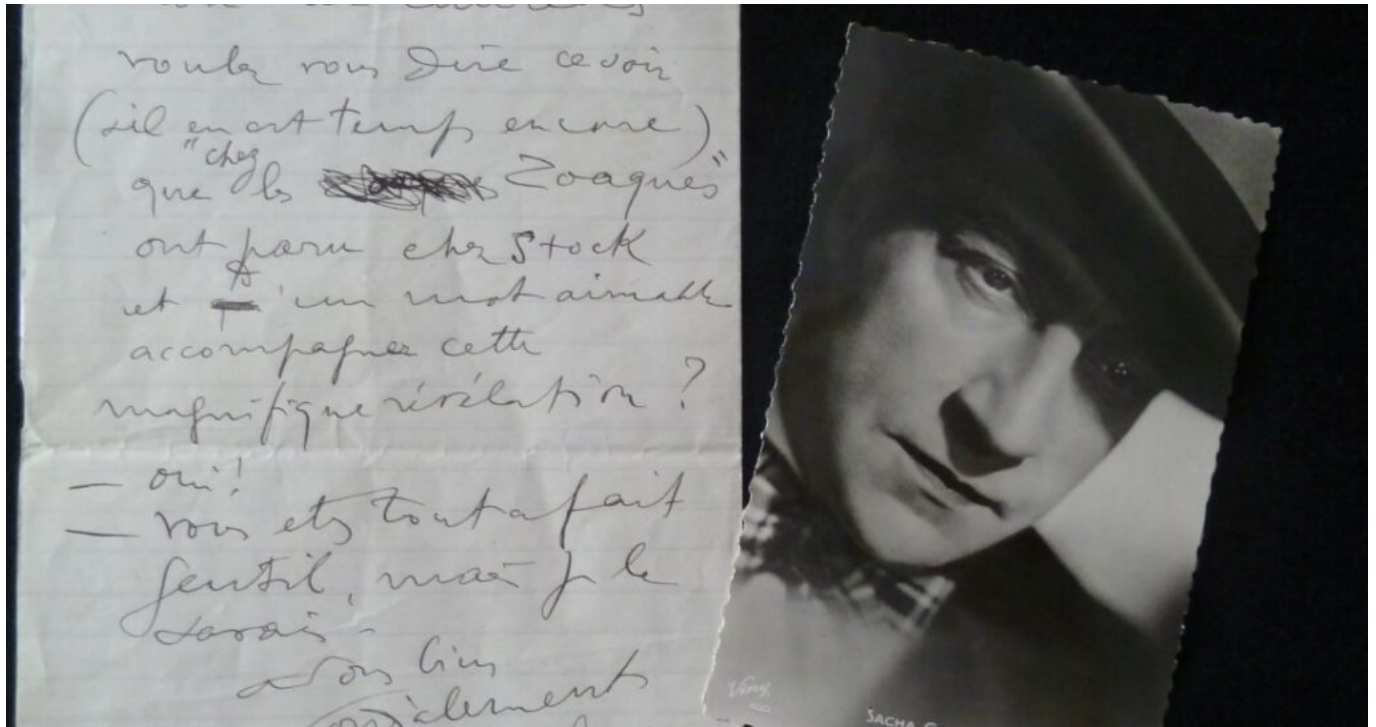 voulez vous dire ce soir
(s'il en est temps encore)
"chez
que les Zoaques"
ont paru chez Stock
et qu'un mot aimable
accompagnez cette
magnifique révélation ?
— oui !
— vous etes tout a fait
gentil, mais je le
savais -
a vous bien
cordialement
Vény
SACHA G